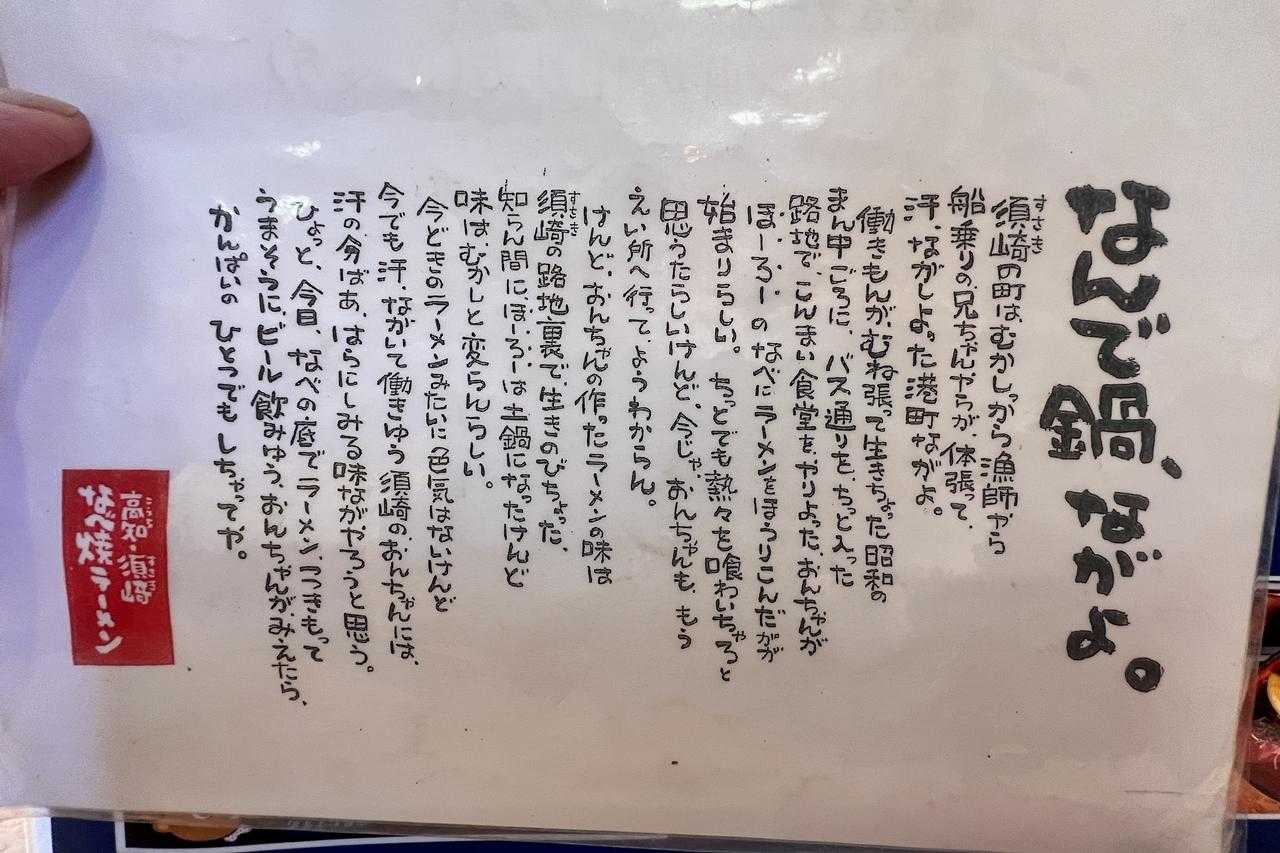 なんで鍋、ながよ。
須崎の町は、むかしっから漁師やら
すさき
船乗りの兄ちゃんやらが、体張って、
汗、ながしよった港町ながよ。
働きもんが、むね張って生きちょった昭和の
まん中ごろに、バス通りを、ちっと入った
路地で、こんまい食堂を、やりよった、おんちゃんが
ほーろーのなべにラーメンをほうりこんだがが
始まりらしい。ちっとでも熱々を喰わいちゃろと
思うたらしいけんど、今じゃ、おんちゃんも、もう
えい所へ行って、ようわからん。
けんど、おんちゃんの作ったラーメンの味は
須崎の路地裏で、生きのびちょった、
すさき
知らん間に、ほーろーは土鍋になったけんど
味は、むかしと変らんらしい。
今どきのラーメンみたいに色気はないけんど
今でも汗、ながいて働きゆう須崎のおんちゃんには、
汗の分ばあ、はらにしみる味ながやろうと思う。
ひょっと、今日、なべの底でラーメン、つつきもって
うまそうに、ビール飲みゆう、おんちゃんが、みえたら、
かんぱいの ひとつでも しちゃってや。
高知・須崎
こうち すさき
なべ焼ラーメン